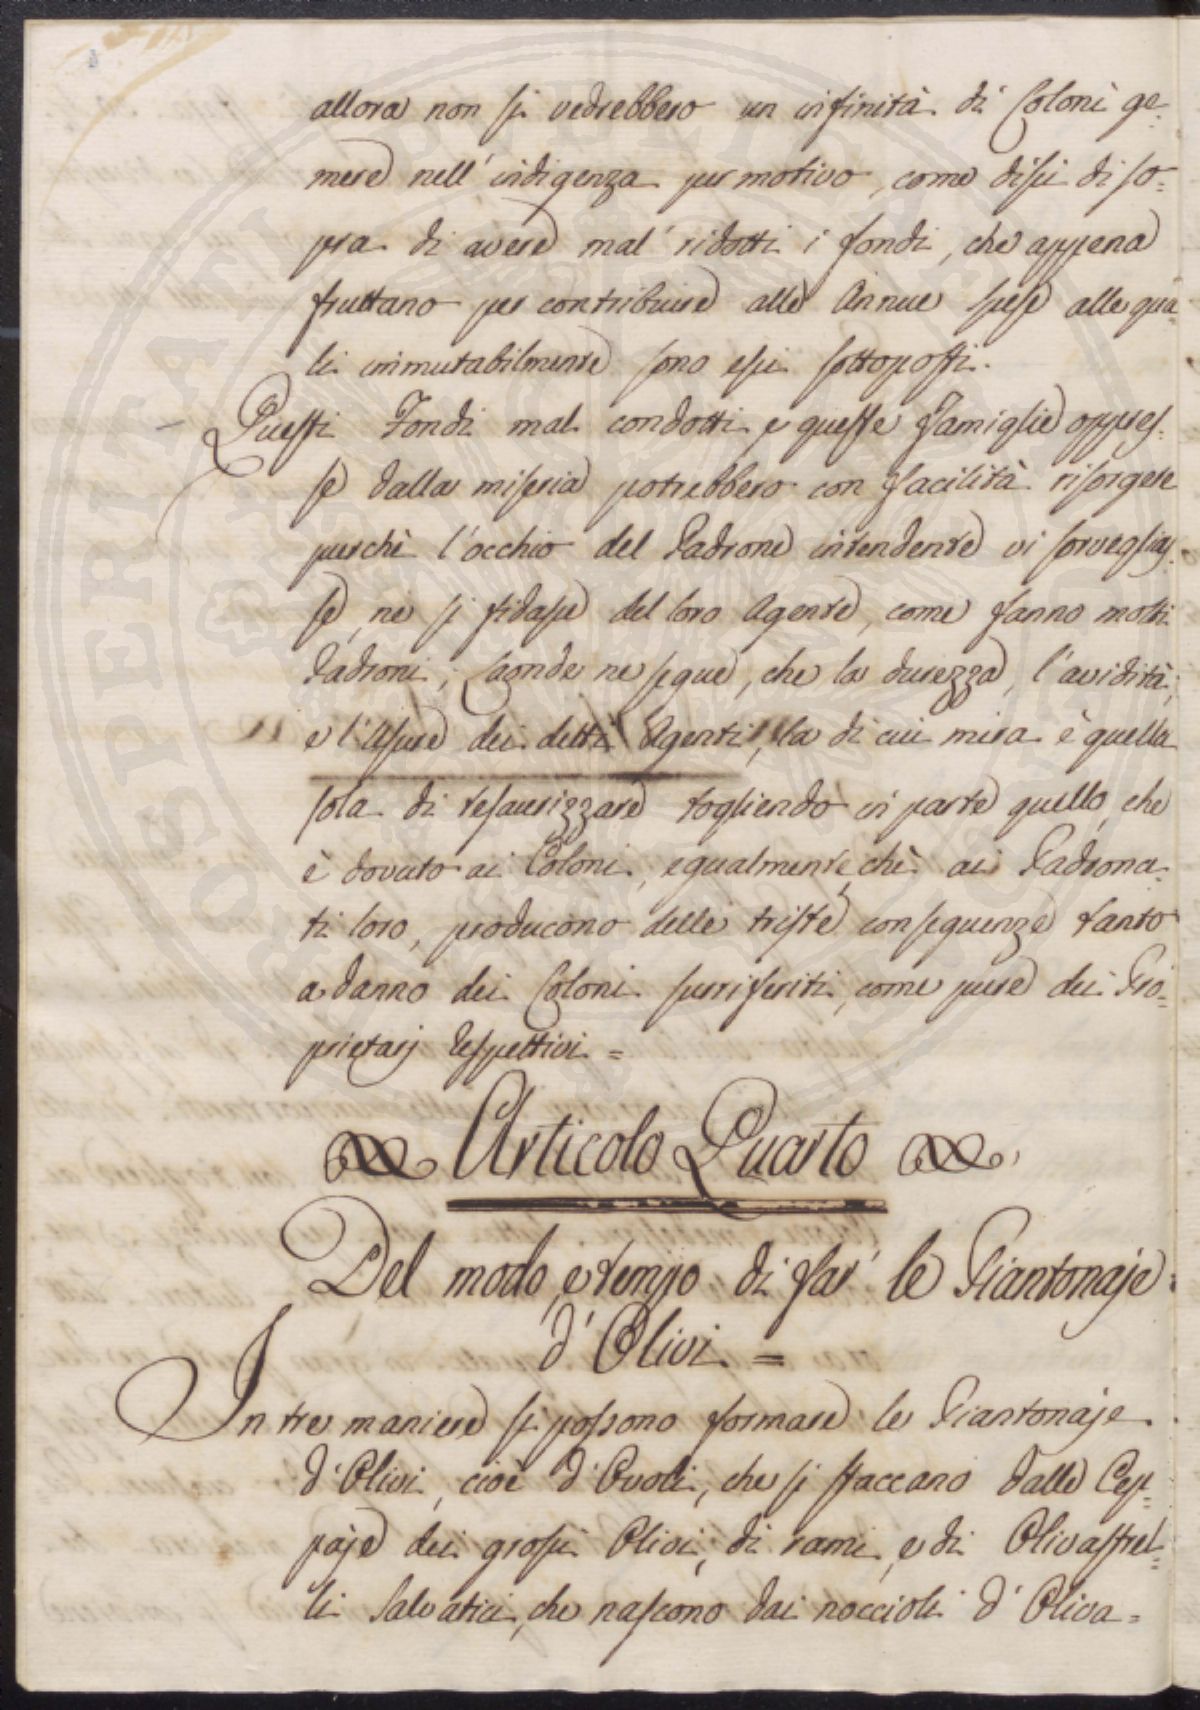 allora non si vedrebbero un infinità di Coloni ge=
mere nell'indigenza per motivo, come dissi di so=
pra di avere mal' ridotti i fondi, che appena
fruttano per contribuire alle Annue spese alle qua=
li immutabilmente sono essi sottoposti.
Questi Fondi mal condotti e queste Famiglie oppres=
se dalla miseria potrebbero con facilità risorgere
purchè l'occhio del Padrone intendente vi sorveglias=
se, ne si fidasse del loro Agente, come fanno molti
Padroni; laonde ne segue, che la durezza, l'avidità,
e l'Asure dei detti Agenti, la di cui mira è quella
sola di tesaurizzare togliendo in parte quello, che
è dovuto ai Coloni, egualmente chè ai Padrona=
ti loro, producono delle triste conseguenze tanto
a danno dei Coloni surriferiti, come pure dei Pro=
prietarj Respettivi =
Articolo Quarto
Del modo, e tempo di far' le Piantonaje
d'Olivi =
In tre maniere si possono formare le Piantonaje
d'Olivi, cioè d'Ovoli, che si staccano dalle Cep=
paje dei grossi Olivi, di rami, e di Olivastrel=
li Salvatici, che nascono dai noccioli d'Oliva=
SOSPERITATI PUBLICAE